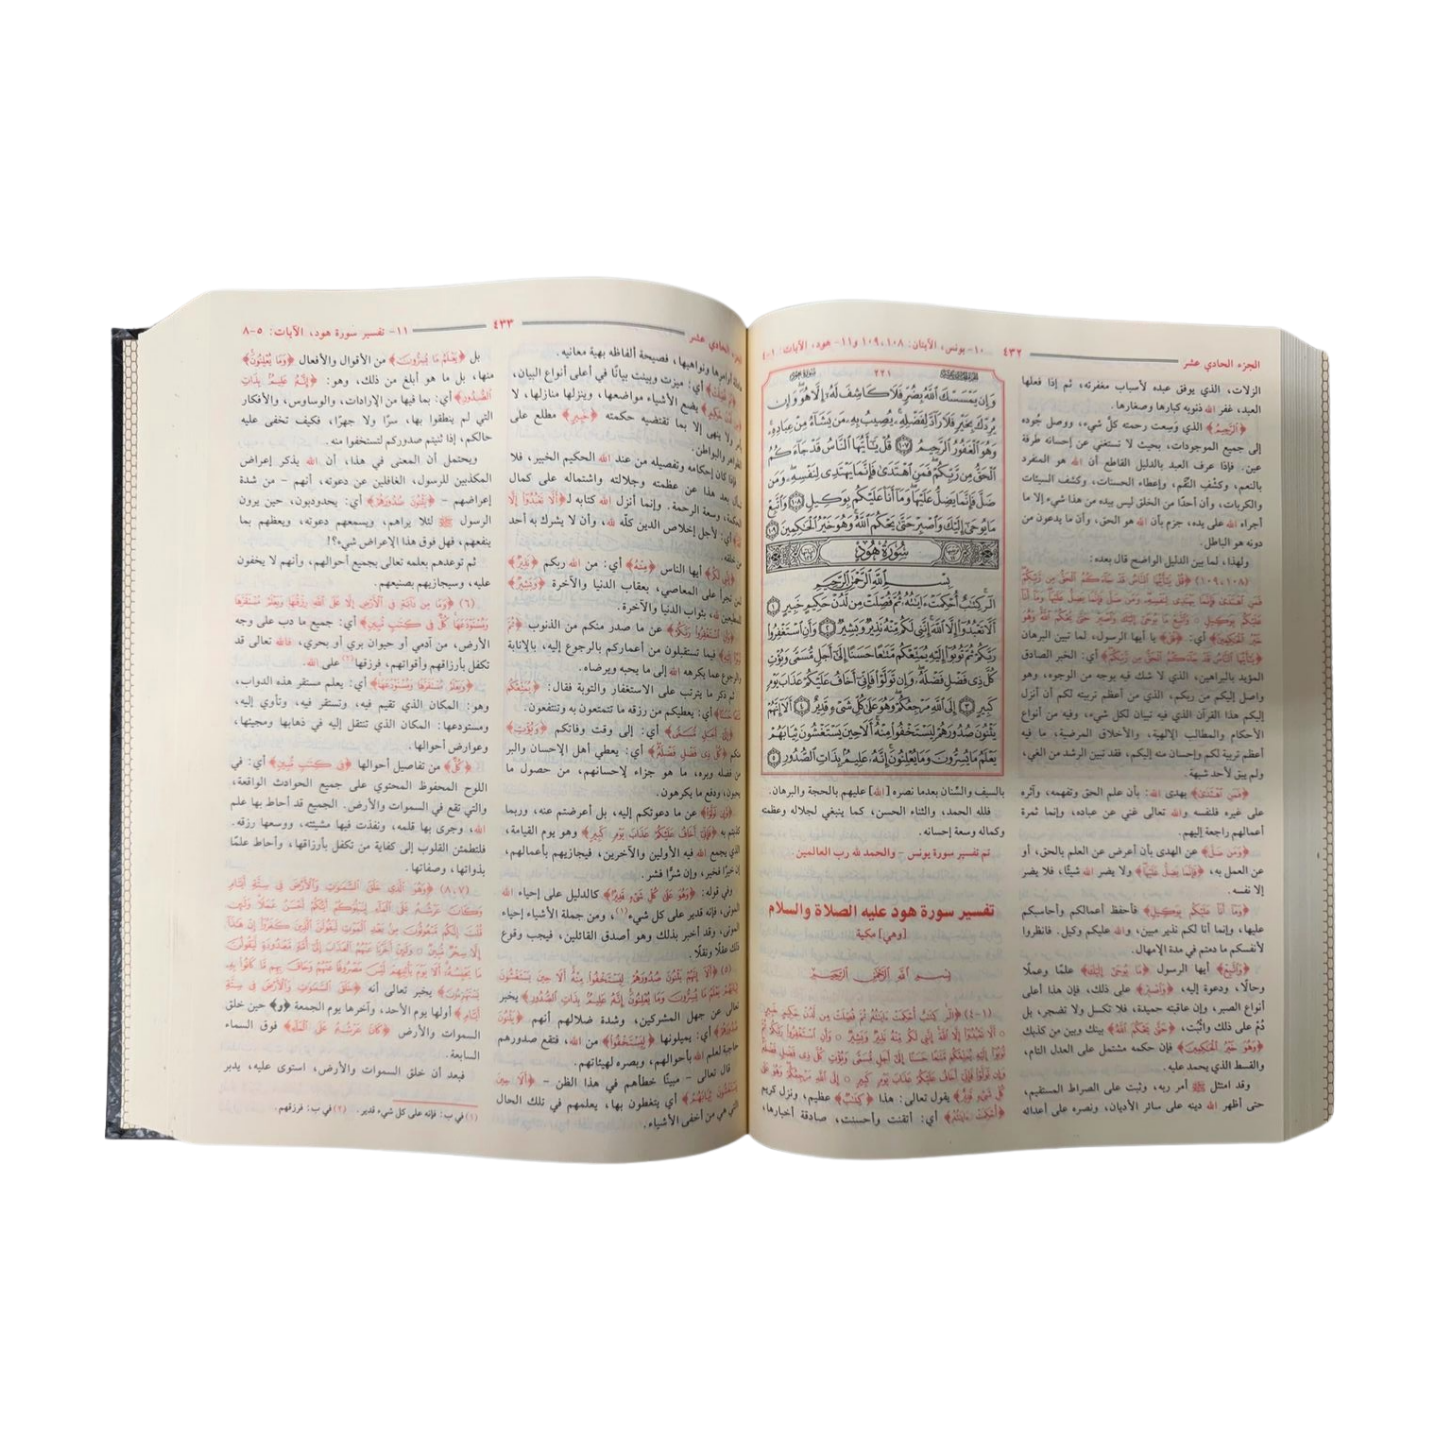 الجزء الحادي عشر
٤٣٢
١٠- يونس، الآيتان: ١٠٨، ١٠٩ و١١- هود، الآيات: ١-٤
الزلات، الذي يوفق عبده لأسباب مغفرته، ثم إذا فعلها
العبد، غفر الله ذنوبه كبارها وصغارها.
﴿الرَّحِيمُ﴾ الذي وُسِعت رحمته كلَّ شيء، ووصل جُوده
إلى جميع الموجودات، بحيث لا تستغني عن إحسانه طرفة
عين. فإذا عرف العبد بالدليل القاطع أن الله هو المنفرد
بالنعم، وكشْف النِّقَم، وإعطاء الحسنات، وكشف السيئات
والكربات، وأن أحدًا من الخلق ليس بيده من هذا شيء إلا ما
أجراه الله على يده، جزم بأن الله هو الحق، وأن ما يدعون من
دونه هو الباطل.
ولهذا، لما بين الدليل الواضح قال بعده:
(١٠٨، ١٠٩) ﴿قُلْ يَٰٓأَيُّهَا ٱلنَّاسُ قَدْ جَآءَكُمُ ٱلْحَقُّ مِن رَّبِّكُمْ
فَمَنِ ٱهْتَدَىٰ فَإِنَّمَا يَهْتَدِى لِنَفْسِهِۦ وَمَن ضَلَّ فَإِنَّمَا يَضِلُّ عَلَيْهَا وَمَآ أَنَا۠
عَلَيْكُم بِوَكِيلٍ ۝ وَٱتَّبِعْ مَا يُوحَىٰٓ إِلَيْكَ وَٱصْبِرْ حَتَّىٰ يَحْكُمَ ٱللَّهُ وَهُوَ
خَيْرُ ٱلْحَٰكِمِينَ﴾ أي: ﴿قُلْ﴾ يا أيها الرسول، لما تبين البرهان
﴿يَٰٓأَيُّهَا ٱلنَّاسُ قَدْ جَآءَكُمُ ٱلْحَقُّ مِن رَّبِّكُمْ﴾ أي: الخبر الصادق
المؤيد بالبراهين، الذي لا شك فيه بوجه من الوجوه، وهو
واصل إليكم من ربكم، الذي من أعظم تربيته لكم أن أنزل
إليكم هذا القرآن الذي فيه تبيان لكل شيء، وفيه من أنواع
الأحكام والمطالب الإلهية، والأخلاق المرضية، ما فيه
أعظم تربية لكم وإحسان منه إليكم، فقد تبين الرشد من الغي،
ولم يبق لأحد شبهة.
﴿فَمَنِ ٱهْتَدَىٰ﴾ بهدى الله: بأن علم الحق وتفهمه، وآثره
على غيره فلنفسه والله تعالى غني عن عباده، وإنما ثمرة
أعمالهم راجعة إليهم.
﴿وَمَن ضَلَّ﴾ عن الهدى بأن أعرض عن العلم بالحق، أو
عن العمل به، ﴿فَإِنَّمَا يَضِلُّ عَلَيْهَا﴾ ولا يضر الله شيئًا، فلا يضر
إلا نفسه.
﴿وَمَآ أَنَا۠ عَلَيْكُم بِوَكِيلٍ﴾ فأحفظ أعمالكم وأحاسبكم
عليها، وإنما أنا لكم نذير مبين، والله عليكم وكيل. فانظروا
لأنفسكم ما دمتم في مدة الإمهال.
﴿وَٱتَّبِعْ﴾ أيها الرسول ﴿مَا يُوحَىٰٓ إِلَيْكَ﴾ علمًا وعملًا
وحالًا، ودعوة إليه، ﴿وَٱصْبِرْ﴾ على ذلك، فإن هذا أعلى
أنواع الصبر، وإن عاقبته حميدة، فلا تكسل ولا تضجر، بل
دُمْ على ذلك واثْبُت، ﴿حَتَّىٰ يَحْكُمَ ٱللَّهُ﴾ بينك وبين من كذبك
﴿وَهُوَ خَيْرُ ٱلْحَٰكِمِينَ﴾ فإن حكمه مشتمل على العدل التام،
والقسط الذي يحمد عليه.
وقد امتثل ﷺ أمر ربه، وثبت على الصراط المستقيم،
حتى أظهر الله دينه على سائر الأديان، ونصره على أعدائه
٢٢١
وَإِن يَمْسَسْكَ ٱللَّهُ بِضُرٍّ فَلَا كَاشِفَ لَهُۥٓ إِلَّا هُوَ وَإِن
يُرِدْكَ بِخَيْرٍ فَلَا رَآدَّ لِفَضْلِهِۦ يُصِيبُ بِهِۦ مَن يَشَآءُ مِنْ عِبَادِهِۦ
وَهُوَ ٱلْغَفُورُ ٱلرَّحِيمُ ۝١٠٧ قُلْ يَٰٓأَيُّهَا ٱلنَّاسُ قَدْ جَآءَكُمُ
ٱلْحَقُّ مِن رَّبِّكُمْ فَمَنِ ٱهْتَدَىٰ فَإِنَّمَا يَهْتَدِى لِنَفْسِهِۦ وَمَن
ضَلَّ فَإِنَّمَا يَضِلُّ عَلَيْهَا وَمَآ أَنَا۠ عَلَيْكُم بِوَكِيلٍ ۝١٠٨ وَٱتَّبِعْ
مَا يُوحَىٰٓ إِلَيْكَ وَٱصْبِرْ حَتَّىٰ يَحْكُمَ ٱللَّهُ وَهُوَ خَيْرُ ٱلْحَٰكِمِينَ ۝١٠٩
سُورَةُ هُودٍ
بِسْمِ ٱللَّهِ ٱلرَّحْمَٰنِ ٱلرَّحِيمِ
الٓر كِتَٰبٌ أُحْكِمَتْ ءَايَٰتُهُۥ ثُمَّ فُصِّلَتْ مِن لَّدُنْ حَكِيمٍ خَبِيرٍ ۝١
أَلَّا تَعْبُدُوٓا۟ إِلَّا ٱللَّهَ إِنَّنِى لَكُم مِّنْهُ نَذِيرٌ وَبَشِيرٌ ۝٢ وَأَنِ ٱسْتَغْفِرُوا۟
رَبَّكُمْ ثُمَّ تُوبُوٓا۟ إِلَيْهِ يُمَتِّعْكُم مَّتَٰعًا حَسَنًا إِلَىٰٓ أَجَلٍ مُّسَمًّى وَيُؤْتِ
كُلَّ ذِى فَضْلٍ فَضْلَهُۥ وَإِن تَوَلَّوْا۟ فَإِنِّىٓ أَخَافُ عَلَيْكُمْ عَذَابَ يَوْمٍ
كَبِيرٍ ۝٣ إِلَى ٱللَّهِ مَرْجِعُكُمْ وَهُوَ عَلَىٰ كُلِّ شَىْءٍ قَدِيرٌ ۝٤ أَلَآ إِنَّهُمْ
يَثْنُونَ صُدُورَهُمْ لِيَسْتَخْفُوا۟ مِنْهُ أَلَا حِينَ يَسْتَغْشُونَ ثِيَابَهُمْ
يَعْلَمُ مَا يُسِرُّونَ وَمَا يُعْلِنُونَ إِنَّهُۥ عَلِيمٌۢ بِذَاتِ ٱلصُّدُورِ ۝٥
بالسيف والسِّنان بعدما نصره [الله] عليهم بالحجة والبرهان.
فلله الحمد، والثناء الحسن، كما ينبغي لجلاله وعظمته
وكماله وسعة إحسانه.
تم تفسير سورة يونس - والحمد لله رب العالمين.
تفسير سورة هود عليه الصلاة والسلام
[وهي] مكية
بِسْمِ ٱللَّهِ ٱلرَّحْمَٰنِ ٱلرَّحِيمِ
(١-٤) ﴿الٓر كِتَٰبٌ أُحْكِمَتْ ءَايَٰتُهُۥ ثُمَّ فُصِّلَتْ مِن لَّدُنْ حَكِيمٍ خَبِيرٍ
۝ أَلَّا تَعْبُدُوٓا۟ إِلَّا ٱللَّهَ إِنَّنِى لَكُم مِّنْهُ نَذِيرٌ وَبَشِيرٌ ۝ وَأَنِ ٱسْتَغْفِرُوا۟ رَبَّكُمْ ثُمَّ
تُوبُوٓا۟ إِلَيْهِ يُمَتِّعْكُم مَّتَٰعًا حَسَنًا إِلَىٰٓ أَجَلٍ مُّسَمًّى وَيُؤْتِ كُلَّ ذِى فَضْلٍ فَضْلَهُۥ
وَإِن تَوَلَّوْا۟ فَإِنِّىٓ أَخَافُ عَلَيْكُمْ عَذَابَ يَوْمٍ كَبِيرٍ ۝ إِلَى ٱللَّهِ مَرْجِعُكُمْ وَهُوَ عَلَىٰ
كُلِّ شَىْءٍ قَدِيرٌ﴾ يقول تعالى: هذا ﴿كِتَٰبٌ﴾ عظيم، ونزل كريم
﴿أُحْكِمَتْ ءَايَٰتُهُۥ﴾ أي: أتقنت وأحسنت، صادقة أخبارها،
الجزء الحادي عشر
٤٣٣
١١- تفسير سورة هود، الآيات: ٥-٨
أوامرها ونواهيها، فصيحة ألفاظه بهية معانيه.
﴿ثُمَّ فُصِّلَتْ﴾ أي: ميزت وبينت بيانًا في أعلى أنواع البيان،
﴿مِن لَّدُنْ حَكِيمٍ﴾ يضع الأشياء مواضعها، وينزلها منازلها، لا
ولا ينهى إلا بما تقتضيه حكمته ﴿خَبِيرٍ﴾ مطلع على
الظواهر والبواطن.
فإذا كان إحكامه وتفصيله من عند الله الحكيم الخبير، فلا
بعد هذا عن عظمته وجلالته واشتماله على كمال
الحكمة، وسعة الرحمة. وإنما أنزل الله كتابه لـ﴿أَلَّا تَعْبُدُوٓا۟ إِلَّا
ٱللَّهَ﴾ أي: لأجل إخلاص الدين كلّه لله، وأن لا يشرك به أحد
من خلقه.
﴿إِنَّنِى لَكُم﴾ أيها الناس ﴿مِّنْهُ﴾ أي: من الله ربكم ﴿نَذِيرٌ﴾
لمن تجرأ على المعاصي، بعقاب الدنيا والآخرة ﴿وَبَشِيرٌ﴾
للمطيعين لله، بثواب الدنيا والآخرة.
﴿وَأَنِ ٱسْتَغْفِرُوا۟ رَبَّكُمْ﴾ عن ما صدر منكم من الذنوب ﴿ثُمَّ
تُوبُوٓا۟ إِلَيْهِ﴾ فيما تستقبلون من أعماركم بالرجوع إليه، بالإنابة
والرجوع عما يكرهه الله إلى ما يحبه ويرضاه.
ثم ذكر ما يترتب على الاستغفار والتوبة فقال: ﴿يُمَتِّعْكُم
مَّتَٰعًا حَسَنًا﴾ أي: يعطيكم من رزقه ما تتمتعون به وتنتفعون.
﴿إِلَىٰٓ أَجَلٍ مُّسَمًّى﴾ أي: إلى وقت وفاتكم ﴿وَيُؤْتِ﴾
منكم ﴿كُلَّ ذِى فَضْلٍ فَضْلَهُۥ﴾ أي: يعطي أهل الإحسان والبر
من فضله وبره، ما هو جزاء لإحسانهم، من حصول ما
يحبون، ودفع ما يكرهون.
﴿وَإِن تَوَلَّوْا۟﴾ عن ما دعوتكم إليه، بل أعرضتم عنه، وربما
كذبتم به ﴿فَإِنِّىٓ أَخَافُ عَلَيْكُمْ عَذَابَ يَوْمٍ كَبِيرٍ﴾ وهو يوم القيامة،
الذي يجمع الله فيه الأولين والآخرين، فيجازيهم بأعمالهم،
إن خيرًا فخير، وإن شرًّا فشر.
وفي قوله: ﴿وَهُوَ عَلَىٰ كُلِّ شَىْءٍ قَدِيرٌ﴾ كالدليل على إحياء الله
الموتى، فإنه قدير على كل شيء(١)، ومن جملة الأشياء إحياء
الموتى، وقد أخبر بذلك وهو أصدق القائلين، فيجب وقوع
ذلك عقلًا ونقلًا.
(٥) ﴿أَلَآ إِنَّهُمْ يَثْنُونَ صُدُورَهُمْ لِيَسْتَخْفُوا۟ مِنْهُ أَلَا حِينَ يَسْتَغْشُونَ
ثِيَابَهُمْ يَعْلَمُ مَا يُسِرُّونَ وَمَا يُعْلِنُونَ إِنَّهُۥ عَلِيمٌۢ بِذَاتِ ٱلصُّدُورِ﴾ يخبر
تعالى عن جهل المشركين، وشدة ضلالهم أنهم ﴿يَثْنُونَ
صُدُورَهُمْ﴾ أي: يميلونها ﴿لِيَسْتَخْفُوا۟﴾ من الله، فتقع صدورهم
حاجبة لعلم الله بأحوالهم، وبصره لهيئاتهم.
قال تعالى - مبينًا خطأهم في هذا الظن - ﴿أَلَا حِينَ
يَسْتَغْشُونَ ثِيَابَهُمْ﴾ أي يتغطون بها، يعلمهم في تلك الحال
التي هي من أخفى الأشياء.
بل ﴿يَعْلَمُ مَا يُسِرُّونَ﴾ من الأقوال والأفعال ﴿وَمَا يُعْلِنُونَ﴾
منها، بل ما هو أبلغ من ذلك، وهو: ﴿إِنَّهُۥ عَلِيمٌۢ بِذَاتِ
ٱلصُّدُورِ﴾ أي: بما فيها من الإرادات، والوساوس، والأفكار
التي لم ينطقوا بها، سرًّا ولا جهرًا، فكيف تخفى عليه
حالكم، إذا ثنيتم صدوركم لتستخفوا منه.
ويحتمل أن المعنى في هذا، أن الله يذكر إعراض
المكذبين للرسول، الغافلين عن دعوته، أنهم - من شدة
إعراضهم - ﴿يَثْنُونَ صُدُورَهُمْ﴾ أي: يحدودبون، حين يرون
الرسول ﷺ لئلا يراهم، ويسمعهم دعوته، ويعظهم بما
ينفعهم، فهل فوق هذا الإعراض شيء؟!
ثم توعدهم بعلمه تعالى بجميع أحوالهم، وأنهم لا يخفون
عليه، وسيجازيهم بصنيعهم.
(٦) ﴿وَمَا مِن دَآبَّةٍ فِى ٱلْأَرْضِ إِلَّا عَلَى ٱللَّهِ رِزْقُهَا وَيَعْلَمُ مُسْتَقَرَّهَا
وَمُسْتَوْدَعَهَا كُلٌّ فِى كِتَٰبٍ مُّبِينٍ﴾ أي: جميع ما دب على وجه
الأرض، من آدمي أو حيوان بري أو بحري، فالله تعالى قد
تكفل بأرزاقهم وأقواتهم، فرزقها(٢) على الله.
﴿وَيَعْلَمُ مُسْتَقَرَّهَا وَمُسْتَوْدَعَهَا﴾ أي: يعلم مستقر هذه الدواب،
وهو: المكان الذي تقيم فيه، وتستقر فيه، وتأوي إليه،
ومستودعها: المكان الذي تنتقل إليه في ذهابها ومجيئها،
وعوارض أحوالها.
﴿كُلٌّ﴾ من تفاصيل أحوالها ﴿فِى كِتَٰبٍ مُّبِينٍ﴾ أي: في
اللوح المحفوظ المحتوي على جميع الحوادث الواقعة،
والتي تقع في السموات والأرض. الجميع قد أحاط بها علم
الله، وجرى بها قلمه، ونفذت فيها مشيئته، ووسعها رزقه.
فلتطمئن القلوب إلى كفاية من تكفل بأرزاقها، وأحاط علمًا
بذواتها، وصفاتها.
(٧، ٨) ﴿وَهُوَ ٱلَّذِى خَلَقَ ٱلسَّمَٰوَٰتِ وَٱلْأَرْضَ فِى سِتَّةِ أَيَّامٍ
وَكَانَ عَرْشُهُۥ عَلَى ٱلْمَآءِ لِيَبْلُوَكُمْ أَيُّكُمْ أَحْسَنُ عَمَلًا وَلَئِن
قُلْتَ إِنَّكُم مَّبْعُوثُونَ مِنۢ بَعْدِ ٱلْمَوْتِ لَيَقُولَنَّ ٱلَّذِينَ كَفَرُوٓا۟ إِنْ هَٰذَآ
إِلَّا سِحْرٌ مُّبِينٌ ۝ وَلَئِنْ أَخَّرْنَا عَنْهُمُ ٱلْعَذَابَ إِلَىٰٓ أُمَّةٍ مَّعْدُودَةٍ لَّيَقُولُنَّ
مَا يَحْبِسُهُۥٓ أَلَا يَوْمَ يَأْتِيهِمْ لَيْسَ مَصْرُوفًا عَنْهُمْ وَحَاقَ بِهِم مَّا كَانُوا۟ بِهِۦ
يَسْتَهْزِءُونَ﴾ يخبر تعالى أنه ﴿خَلَقَ ٱلسَّمَٰوَٰتِ وَٱلْأَرْضَ فِى سِتَّةِ
أَيَّامٍ﴾ أولها يوم الأحد، وآخرها يوم الجمعة ﴿و﴾ حين خلق
السموات والأرض ﴿كَانَ عَرْشُهُۥ عَلَى ٱلْمَآءِ﴾ فوق السماء
السابعة.
فبعد أن خلق السموات والأرض، استوى عليه، يدبر
(١) في ب: فإنه على كل شيء قدير. (٢) في ب: فرزقهم.